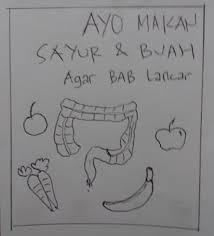 AYO MAKAN
SAYUR & BUAH
Agar BAB Lancar